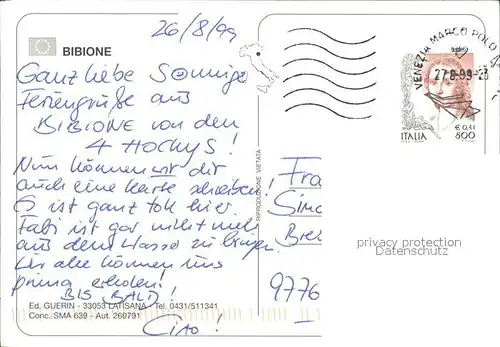 26/8/99
BIBIONE
Ganz liebe Sonnige
Feriengrüße aus
BIBIONE von den
4 HOCHYS!
Nun können wir dir
auch eine Karte schreiben!
Es ist ganz toll hier.
Fabi ist gar nicht mehr
aus dem Wasser zu bringen.
Wir alle können uns
prima erholen!
BIS BALD!
Ciao!
Ed. GUERIN - 33053 LATISANA - Tel. 0431/511341
Conc. SMA 639 - Aut. 260791
RIPRODUZIONE VIETATA
VENEZIA MARCO POLO
27-8-99-23
€ 0,41
ITALIA 800
Fra
privacy protection
Datenschutz
9776
I